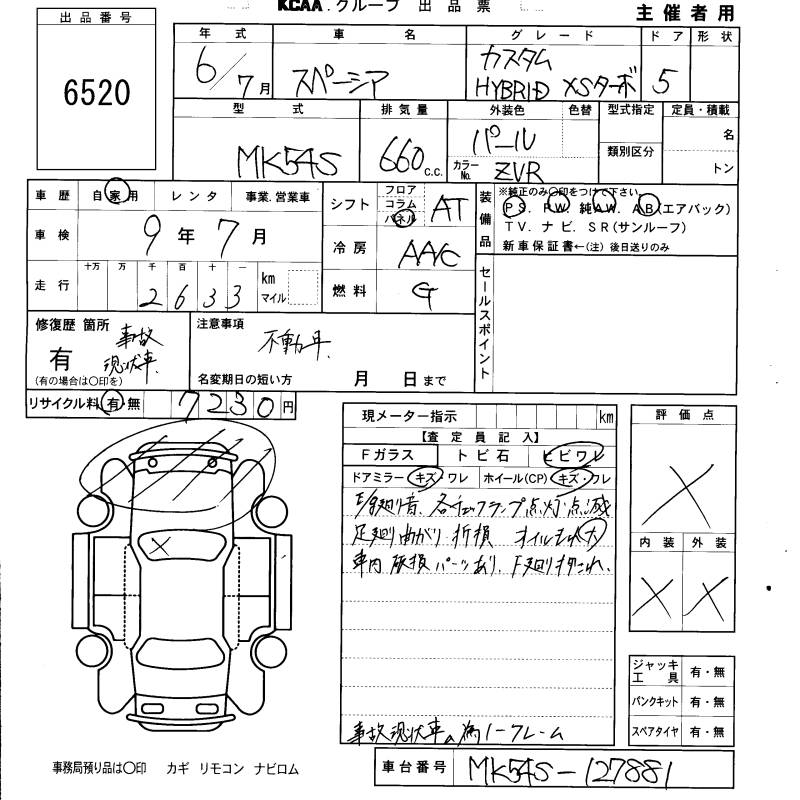 KCAA.グループ 出品票
主催者用
出品番号
6520
年式 車名 グレード ドア 形状
6/7月 スペーシア カスタム HYBRID XSターボ 5
型式 排気量 外装色 色替 型式指定 定員・積載
MK54S 660c.c. パール 名
類別区分
カラーNo. ZVR トン
車歴 自家用 レンタ 事業.営業車
車検 9年 7月
走行 十万 万 千 百 十 一
2 6 3 3 km マイル
シフト フロア コラム パネル AT
冷房 AAC
燃料 G
装備品 ※純正のみ〇印をつけて下さい
PS. PW. 純AW. AB(エアバック)
TV.ナビ.SR(サンルーフ)
新車保証書←(注) 後日送りのみ
セールスポイント
修復歴 箇所 事故現状車
有
(有の場合は〇印を)
注意事項
不動車
名変期日の短い方 月 日まで
リサイクル料 有・無 7230円
現メーター指示 km
【査定員記入】
Fガラス トビ石 ヒビワレ
ドアミラー キズ・ワレ ホイール(CP) キズ・ワレ
各チェックランプ点灯・点滅
足廻り曲がり 折損 オイルモレ大
車内 破損 パーツあり、下廻り
事故現状車の為ノークレーム
車台番号 MK54S-127881
評価点
X
内装 外装
X X
ジャッキ工具 有・無
パンクキット 有・無
スペアタイヤ 有・無
X
事務局預り品は〇印 カギ リモコン ナビロム